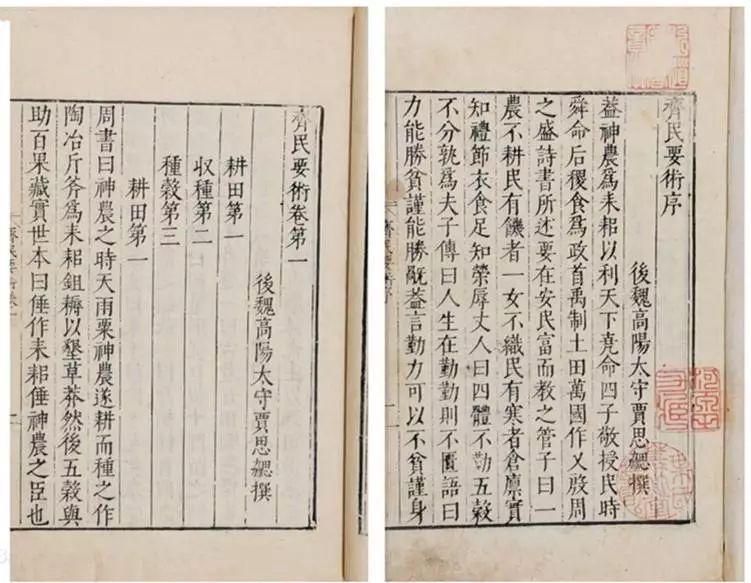 齊民要術序
後魏高陽太守賈思勰撰
葢神農爲耒耜以利天下堯命四子敬授民時
舜命后稷食爲政首禹制土田萬國作乂殷周
之盛詩書所述要在安民富而教之管子曰一
農不耕民有饑者一女不織民有寒者倉廩實
知禮節衣食足知榮辱丈人曰四體不勤五穀
不分孰爲夫子傳曰人生在勤勤則不匱語曰
力能勝貧謹能勝旤葢言勤力可以不貧謹身
齊民要術卷第一
後魏高陽太守賈思勰撰
耕田第一
収種第二
種穀第三
耕田第一
周書曰神農之時天雨粟神農遂耕而種之作
陶冶斤斧爲耒耜鉏耨以墾草莽然後五穀與
助百果藏實世本曰倕作耒耜倕神農之臣也